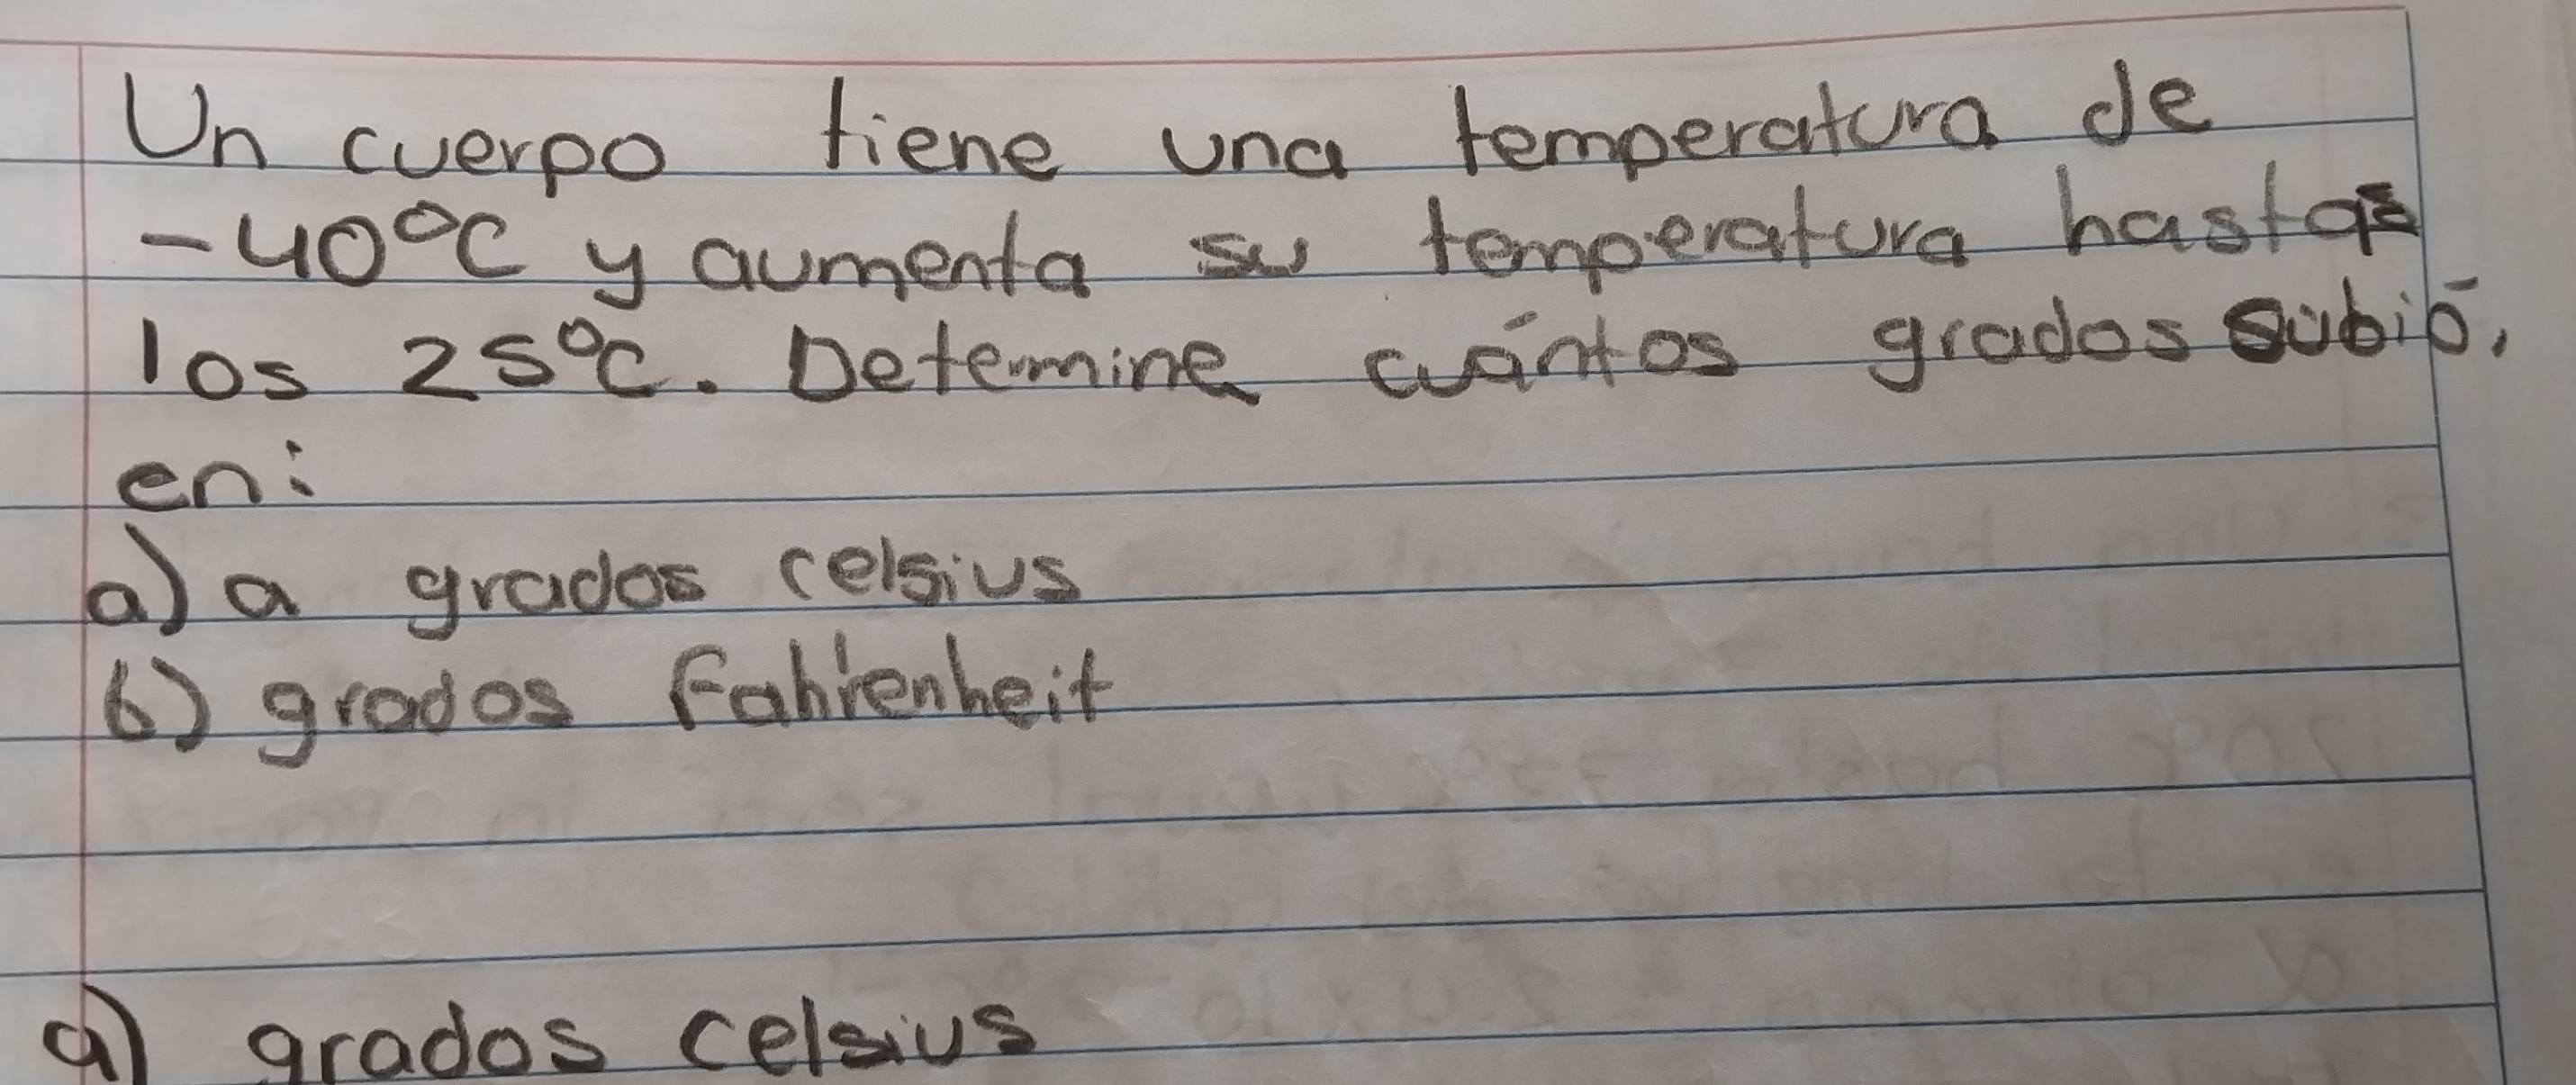 Un cuerpo tiene una temperatura de
-40°C y aumenta su temperatura hastas
los 25°C. Detemine cuántos grados subió,
en:
a) a grados celsius
b) grados Fahrenheit
a) grados celsius